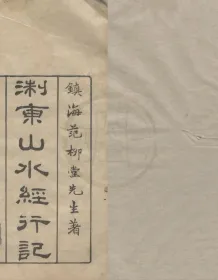 鎮海范柳堂先生著
浙東山水經行記